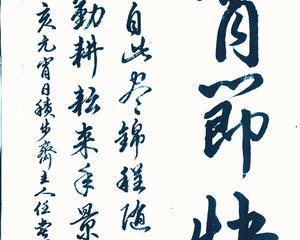 宵節快
自此尽錦程随
勤耕耘来年景
亥元宵日積步齋主人任